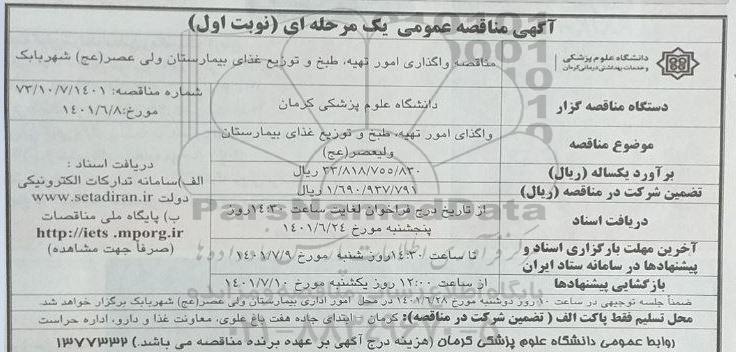 آگهی مناقصه عمومی یک مرحله ای (نوبت اول)
دانشگاه علوم پزشکی
وخدمات بهداشتی درمانی کرمان
مناقصه واگذاری امور تهیه، طبخ و توزیع غذای بیمارستان ولی عصر(عج) شهربابک
شماره مناقصه: ۷۳/۱۰/۷/۱۴۰۱
مورخ:۱۴۰۱/۶/۸
دستگاه مناقصه گزار
دانشگاه علوم پزشکی کرمان
موضوع مناقصه
واگذای امور تهیه، طبخ و توزیع غذای بیمارستان
ولیعصر(عج)
برآورد یکساله (ریال)
۳۳/۸۱۸/۷۵۵/۸۳۰ ریال
تضمین شرکت در مناقصه (ریال)
۱/۶۹۰/۹۳۷/۷۹۱ ریال
دریافت اسناد
از تاریخ درج فراخوان لغایت ساعت ۱۴:۳۰روز
پنجشنبه مورخ ۱۴۰۱/۶/۲۴
آخرین مهلت بارگزاری اسناد و
پیشنهادها در سامانه ستاد ایران
تا ساعت ۱۴:۳۰روز شنبه مورخ ۱۴۰۱/۷/۹
بازگشایی پیشنهادها
از ساعت ۱۲:۰۰ روز یکشنبه مورخ ۱۴۰۱/۷/۱۰
دریافت اسناد :
الف)سامانه تدارکات الکترونیکی
دولت www.setadiran.ir
ب) پایگاه ملی مناقصات
http://iets .mporg.ir
(صرفاً جهت مشاهده)
ضمناً جلسه توجیهی در ساعت ۱۰ روز دوشنبه مورخ ۱۴۰۱/۶/۲۸ در محل امور اداری بیمارستان ولی عصر(عج) شهربابک برگزار خواهد شد.
محل تسلیم فقط پاکت الف ( تضمین شرکت در مناقصه): کرمان - ابتدای جاده هفت باغ علوی، معاونت غذا و دارو، اداره حراست
روابط عمومی دانشگاه علوم پزشکی کرمان (هزینه درج آگهی بر عهده برنده مناقصه می باشد.) ۱۳۷۷۳۳۲
ParsNamadData